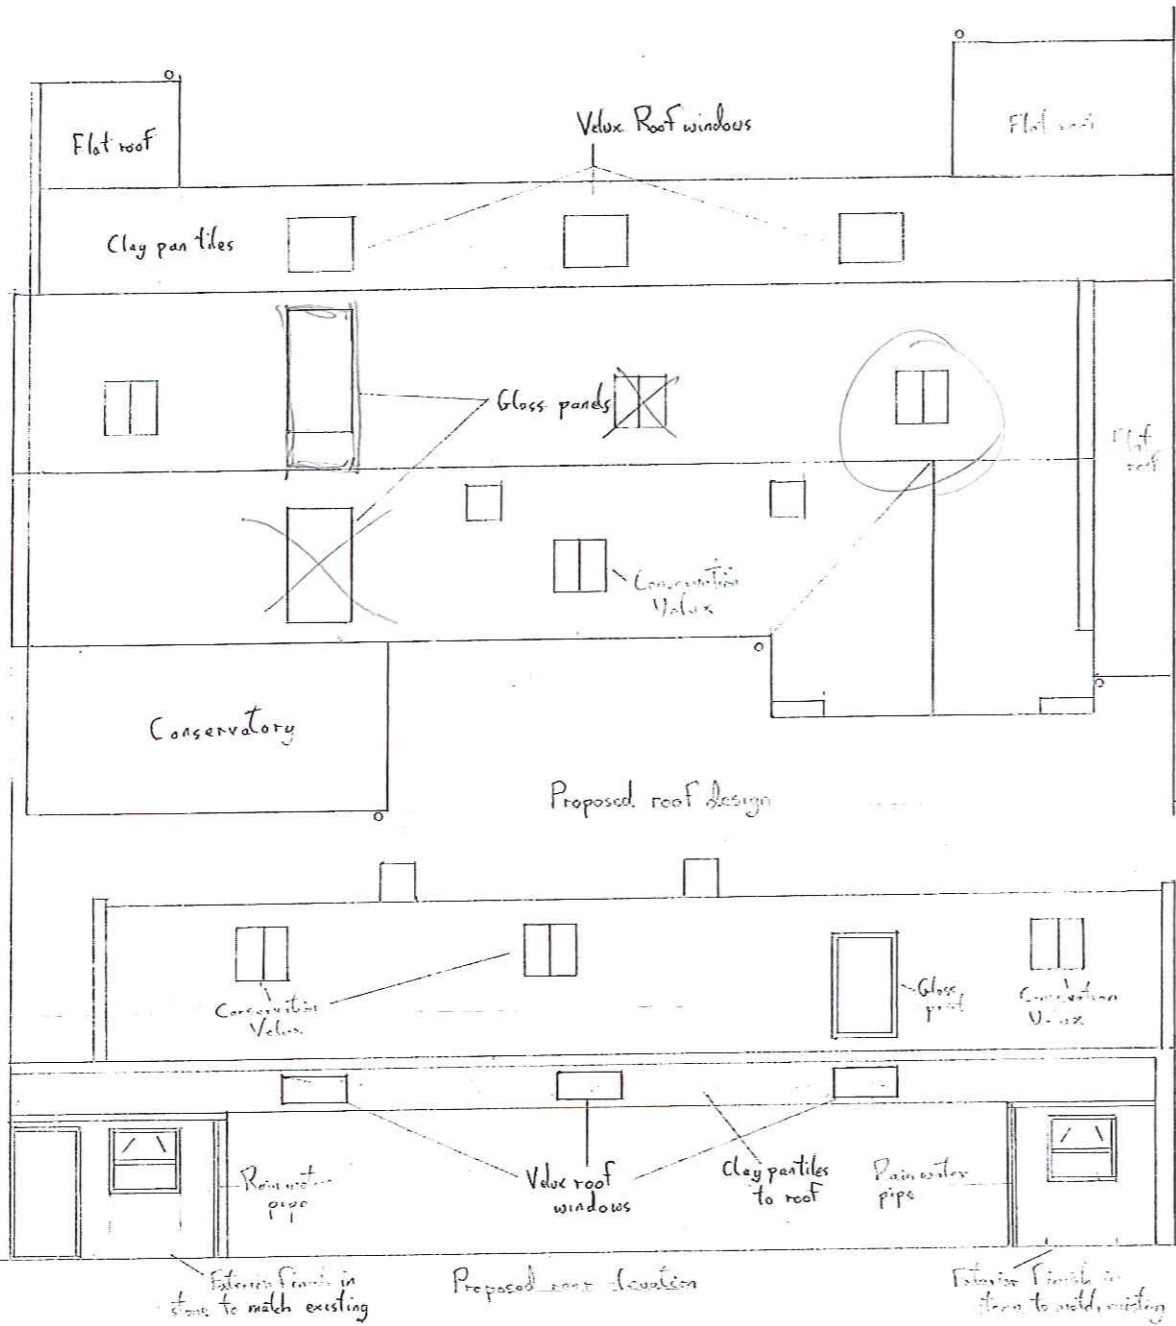 Flat roof
Velux Roof windows
Flat roof
Clay pan tiles
Glass panels
Flat
roof
Conservation
Velux
Conservatory
Proposed roof design
Conservation
Velux
Glass
Conservation
Velux
Rain water
pipe
Velux roof
windows
Clay pantiles
to roof
Rain water
pipe
Exterior Finish in
stone to match existing
Proposed rear elevation
Exterior Finish in
stone to match existing